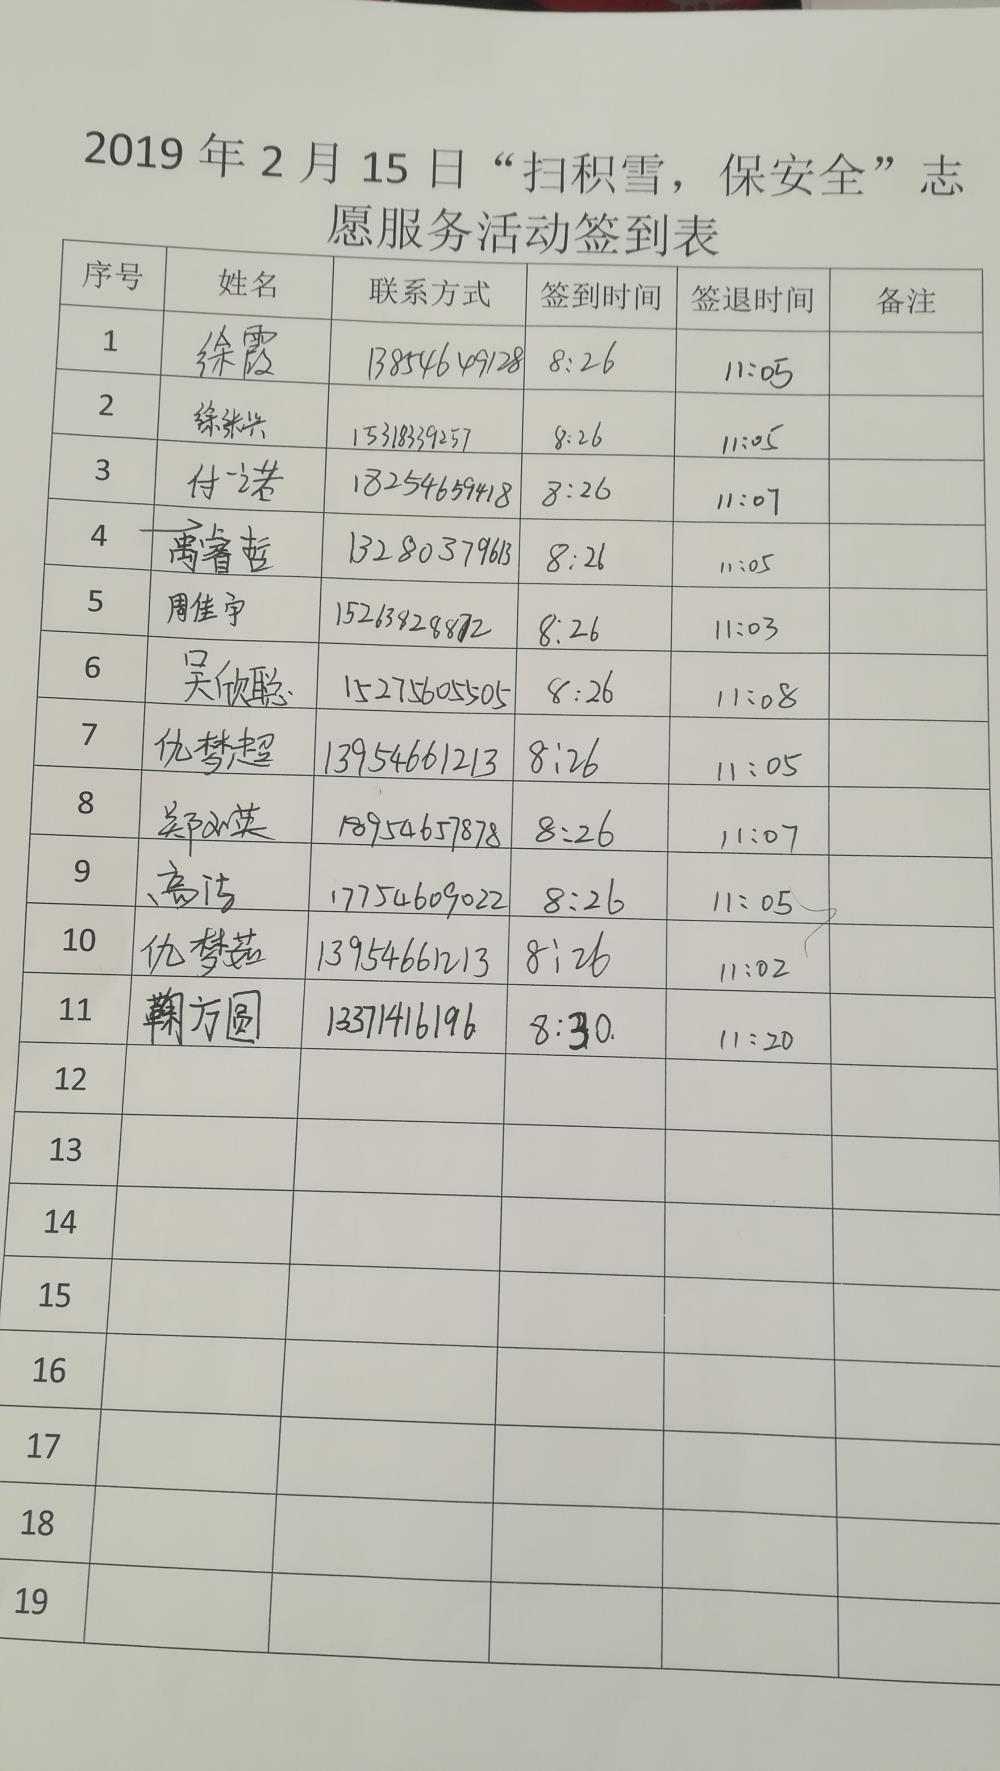 2019 年 2 月 15 日“扫积雪，保安全”志
愿服务活动签到表
序号 姓名 联系方式 签到时间 签退时间 备注
1 徐霞 13854649128 8:26 11:05
2 徐张兴 15318339257 8:26 11:05
3 付一诺 18254659418 8:26 11:07
4 禹睿哲 13280379613 8:26 11:05
5 周佳宇 15263828872 8:26 11:03
6 吴欣聪 15275605505 8:26 11:08
7 仇梦超 13954661213 8:26 11:05
8 郑小英 18954657878 8:26 11:07
9 高洁 17754609022 8:26 11:05
10 仇梦茹 13954661213 8:26 11:02
11 鞠方圆 13371416196 8:30. 11:20
12
13
14
15
16
17
18
19